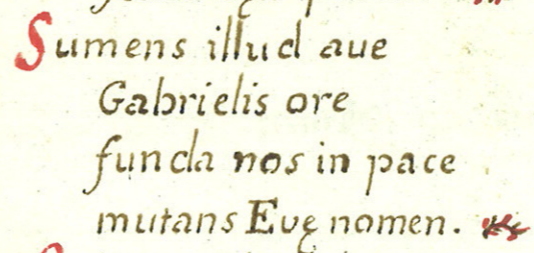 Sumens illud aue
Gabrielis ore
funda nos in pace
mutans Euę nomen.